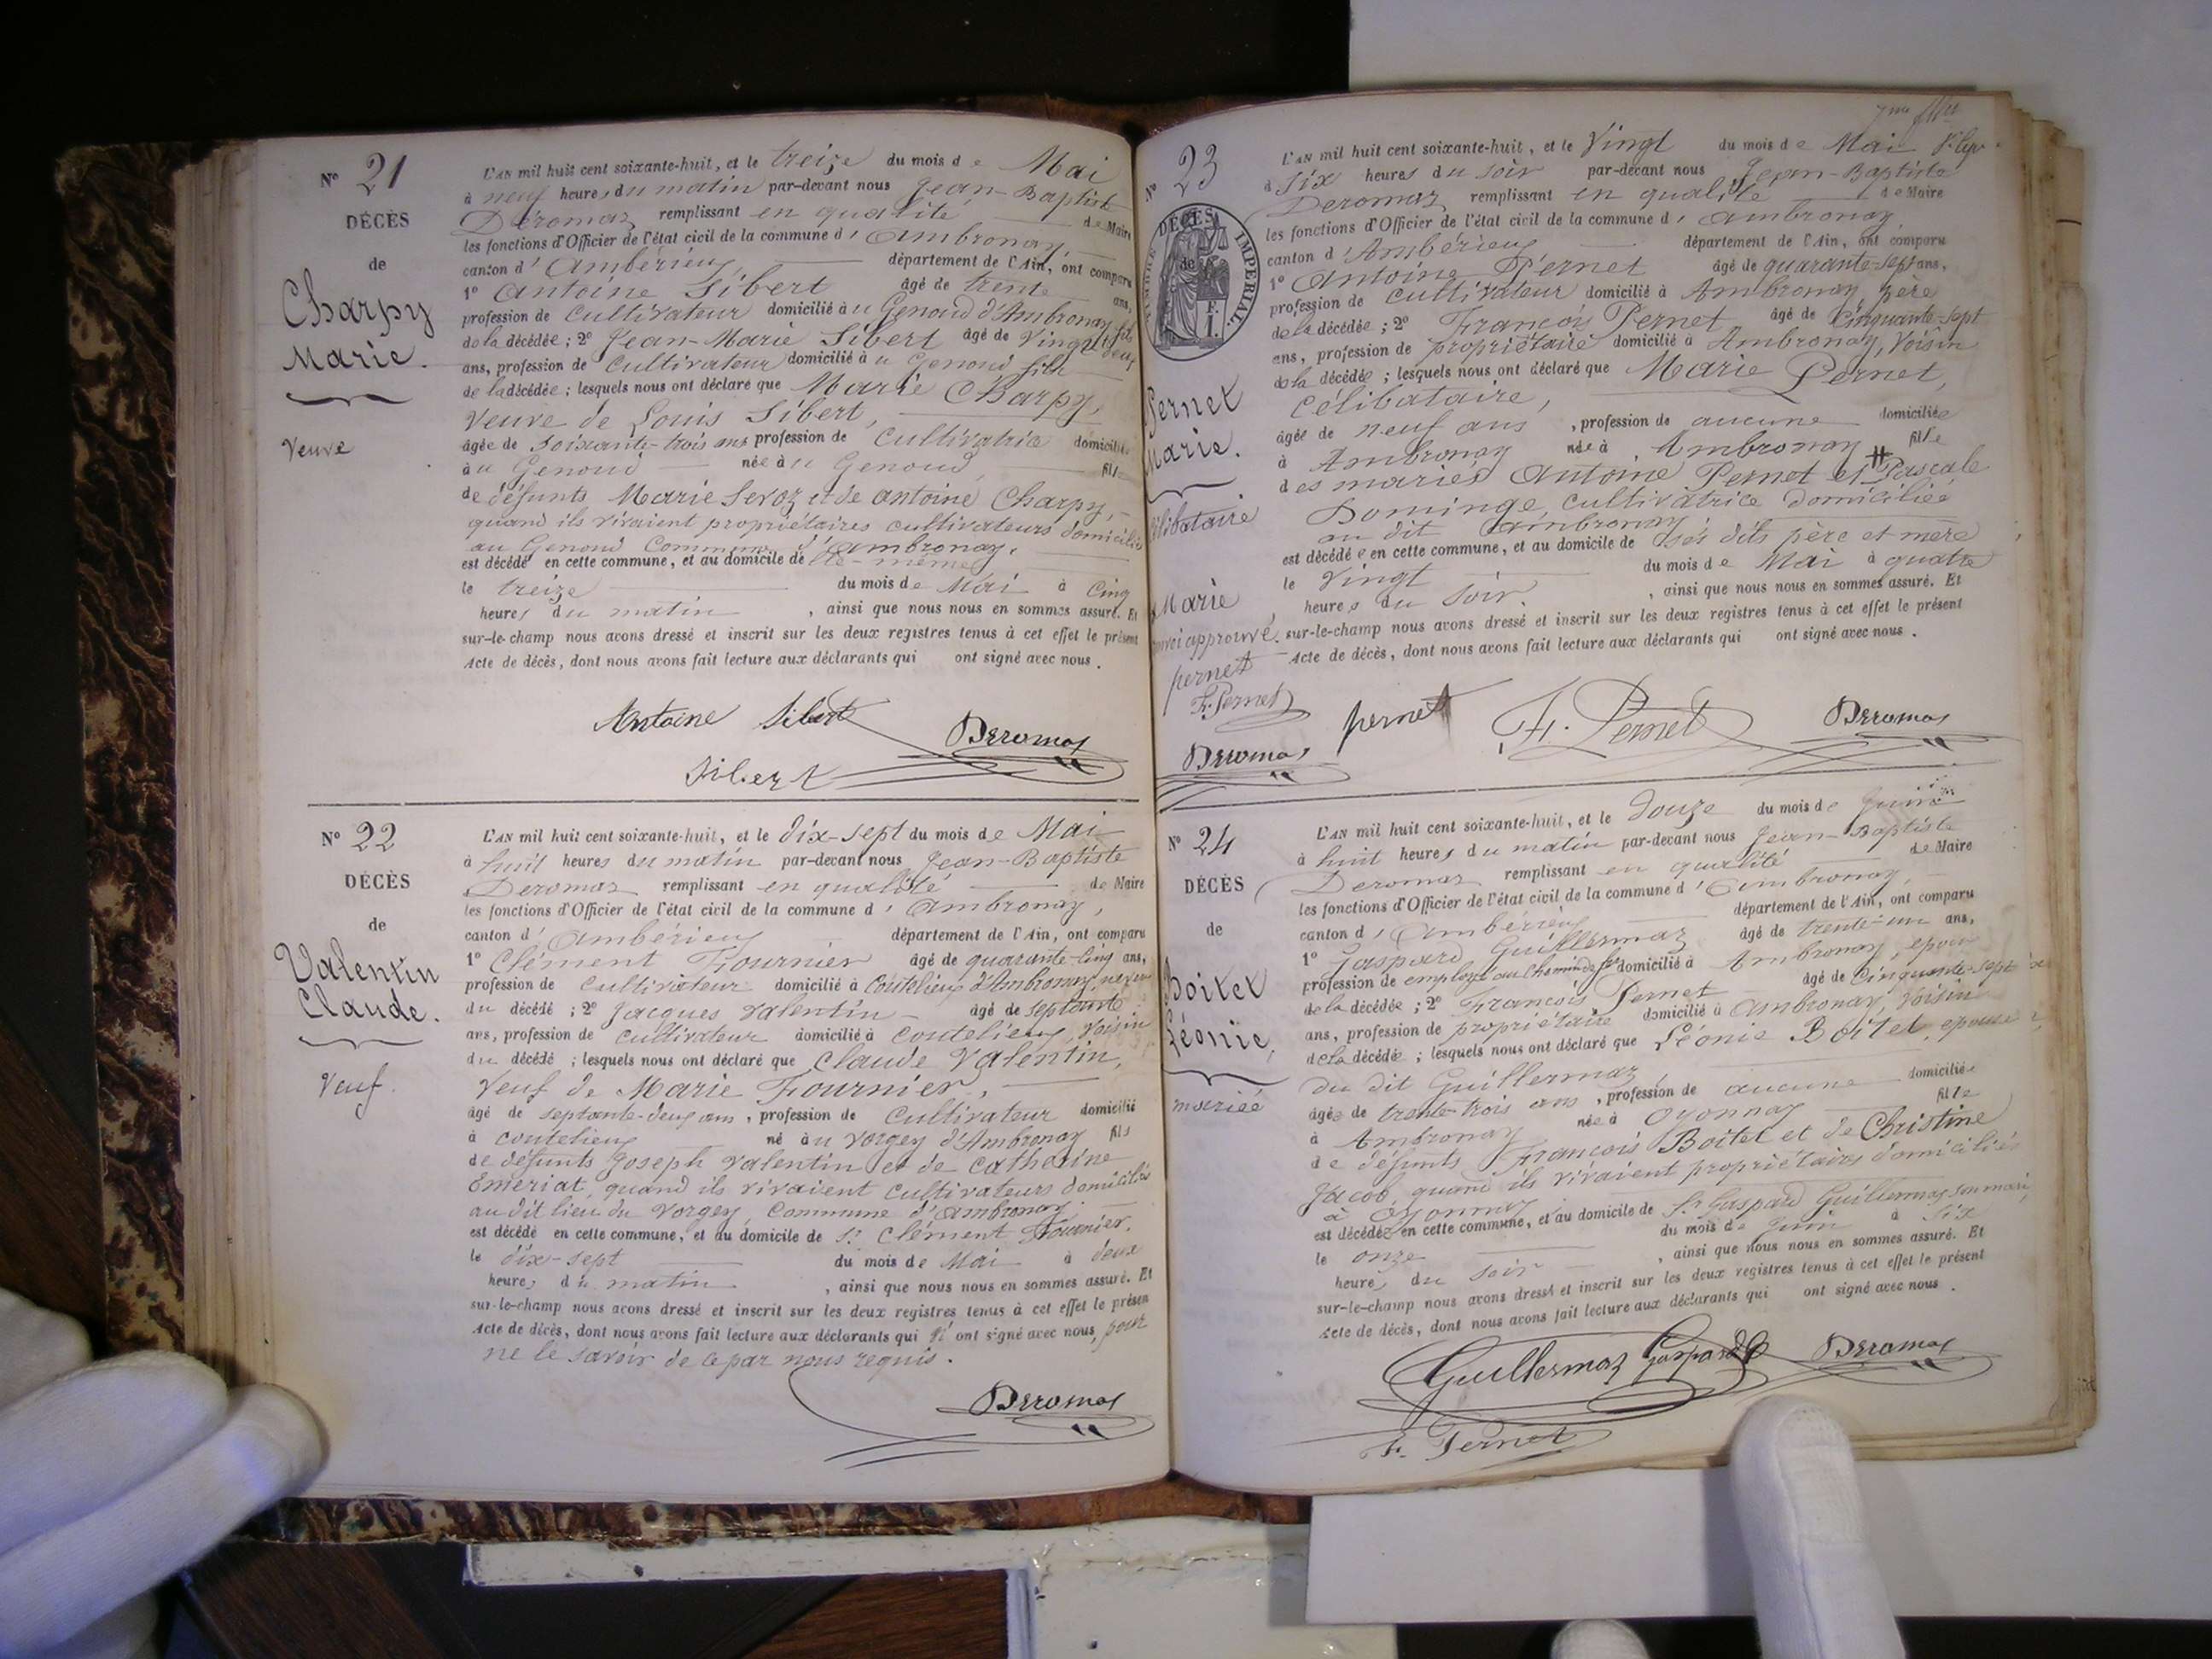 N° 21
DÉCÈS
de
Charpy
Marie.
Veuve
L'AN mil huit cent soixante-huit, et le treize du mois de Mai
à neuf heures du matin par-devant nous Jean-Baptiste
Deromas remplissant en qualité de Maire
les fonctions d'Officier de l'état civil de la commune d'Ambronay,
canton d'Ambérieux département de l'Ain, ont comparu
1° Antoine Sibert âgé de trente ans,
profession de Cultivateur domicilié au Genoud d'Ambronay, fils
de la décédée ; 2° Jean-Marie Sibert âgé de Vingt deux
ans, profession de Cultivateur domicilié au Genoud fils
de la décédée ; lesquels nous ont déclaré que Marie Charpy,
Veuve de Louis Sibert,
âgée de soixante-trois ans profession de Cultivatrice domiciliée
au Genoud née au Genoud fille
de défunts Marie Servoz et de Antoine Charpy,
quand ils vivaient propriétaires cultivateurs domiciliés
au Genoud Commune d'Ambronay.
est décédé en cette commune, et au domicile de elle-même
le treize du mois de Mai à cinq
heures du matin, ainsi que nous nous en sommes assuré. Et
sur-le-champ nous avons dressé et inscrit sur les deux registres tenus à cet effet le présent
Acte de décès, dont nous avons fait lecture aux déclarants qui ont signé avec nous.
Antoine Sibert
Deromas
Sibert
N° 22
DÉCÈS
de
Valentin
Claude.
Veuf.
L'AN mil huit cent soixante-huit, et le dix-sept du mois de Mai
à huit heures du matin par-devant nous Jean-Baptiste
Deromas remplissant en qualité de Maire
les fonctions d'Officier de l'état civil de la commune d'Ambronay,
canton d'Ambérieux département de l'Ain, ont comparu
1° Clément Fournier âgé de quarante-cinq ans,
profession de Cultivateur domicilié à Coutelieux d'Ambronay, neveu
du décédé ; 2° Jacques Valentin âgé de septante
ans, profession de Cultivateur domicilié à Coutelieux, Voisin
du décédé ; lesquels nous ont déclaré que Claude Valentin,
Veuf de Marie Fournier,
âgé de septante-deux ans, profession de Cultivateur domicilié
à Coutelieux né au Vorgey d'Ambronay fils
de défunts Joseph Valentin et de Catherine
Emeriat, quand ils vivaient cultivateurs domiciliés
au dit lieu du Vorgey, Commune d'Ambronay.
est décédé en cette commune, et au domicile de Sr Clément Fournier.
le dix-sept du mois de Mai à deux
heures du matin, ainsi que nous nous en sommes assuré. Et
sur-le-champ nous avons dressé et inscrit sur les deux registres tenus à cet effet le présen
Acte de décès, dont nous avons fait lecture aux déclarants qui n'ont signé avec nous, pour
ne le savoir de ce par nous requis.
Deromas
N° 23
DÉCÈS
de
TIMBRE IMPÉRIAL
1 F.
Pernet
Marie.
Célibataire
L'AN mil huit cent soixante-huit, et le Vingt du mois de Mai
à six heures du soir par-devant nous Jean-Baptiste
Deromas remplissant en qualité de Maire
les fonctions d'Officier de l'état civil de la commune d'Ambronay,
canton d'Ambérieux département de l'Ain, ont comparu
1° Antoine Pernet âgé de quarante-sept ans,
profession de Cultivateur domicilié à Ambronay, père
de la décédée ; 2° François Pernet âgé de Cinquante-sept
ans, profession de propriétaire domicilié à Ambronay, Voisin
de la décédée ; lesquels nous ont déclaré que Marie Pernet,
Célibataire,
âgée de neuf ans, profession de aucune domiciliée
à Ambronay née à Ambronay fille
des mariés Antoine Pernet et # Pascale
Dominge, cultivatrice domiciliée
au dit Ambronay
est décédée en cette commune, et au domicile de ses dits père et mère
le Vingt du mois de Mai à quatre
heures du soir, ainsi que nous nous en sommes assuré. Et
sur-le-champ nous avons dressé et inscrit sur les deux registres tenus à cet effet le présent
Acte de décès, dont nous avons fait lecture aux déclarants qui ont signé avec nous.
Marie
renvoi approuvé.
pernet
F. Pernet
Deromas
pernet
F. Pernet
Deromas
N° 24
DÉCÈS
de
Boitet
Léonie,
mariée
L'AN mil huit cent soixante-huit, et le douze du mois de Juin
à huit heures du matin par-devant nous Jean-Baptiste
Deromas remplissant en qualité de Maire
les fonctions d'Officier de l'état civil de la commune d'Ambronay,
canton d'Ambérieux département de l'Ain, ont comparu
1° Gaspard Guillermaz âgé de trente-un ans,
profession de employé au Chemin de fer domicilié à Ambronay, époux
de la décédée ; 2° François Pernet âgé de Cinquante-sept
ans, profession de propriétaire domicilié à Ambronay, Voisin
de la décédée ; lesquels nous ont déclaré que Léonie Boitet, épouse
du dit Guillermaz
âgée de trente-trois ans, profession de aucune domiciliée
à Ambronay née à Oyonnax fille
de défunts François Boitet et de Christine
Jacob, quand ils vivaient propriétaires domiciliés
à Oyonnax
est décédée en cette commune, et au domicile de Sr Gaspard Guillermaz son mari,
le onze du mois de Juin à six
heures du soir, ainsi que nous nous en sommes assuré. Et
sur-le-champ nous avons dressé et inscrit sur les deux registres tenus à cet effet le présent
Acte de décès, dont nous avons fait lecture aux déclarants qui ont signé avec nous.
Guillermaz Gaspard
Deromas
F. Pernet